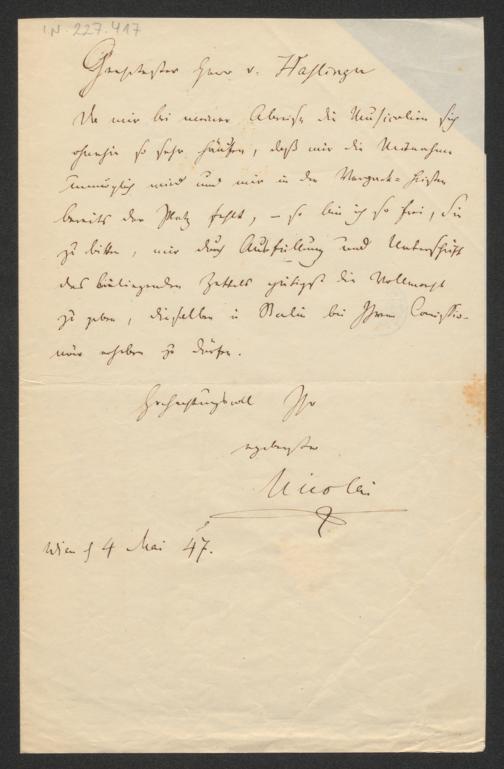 IN. 227.417
Geehrtester Herr v. Haslinger
Da mir bei meiner Abreise die Musicalien sich
ohnehin so sehr häufen, daß mir die Mitnahme
unmöglich wird und mir in den Verpack-Kisten
bereits der Platz fehlt, – so bin ich so frei, Sie
zu bitten, mir durch Ausfüllung und Unterschrift
des beiliegenden Zettels gütigst die Vollmacht
zu geben, dieselben in Berlin bei Ihrem Comissio-
när erheben zu dürfen.
Hochachtungsvoll Ihr
ergebenster
Nicolai
Wien d 4 Mai 47.